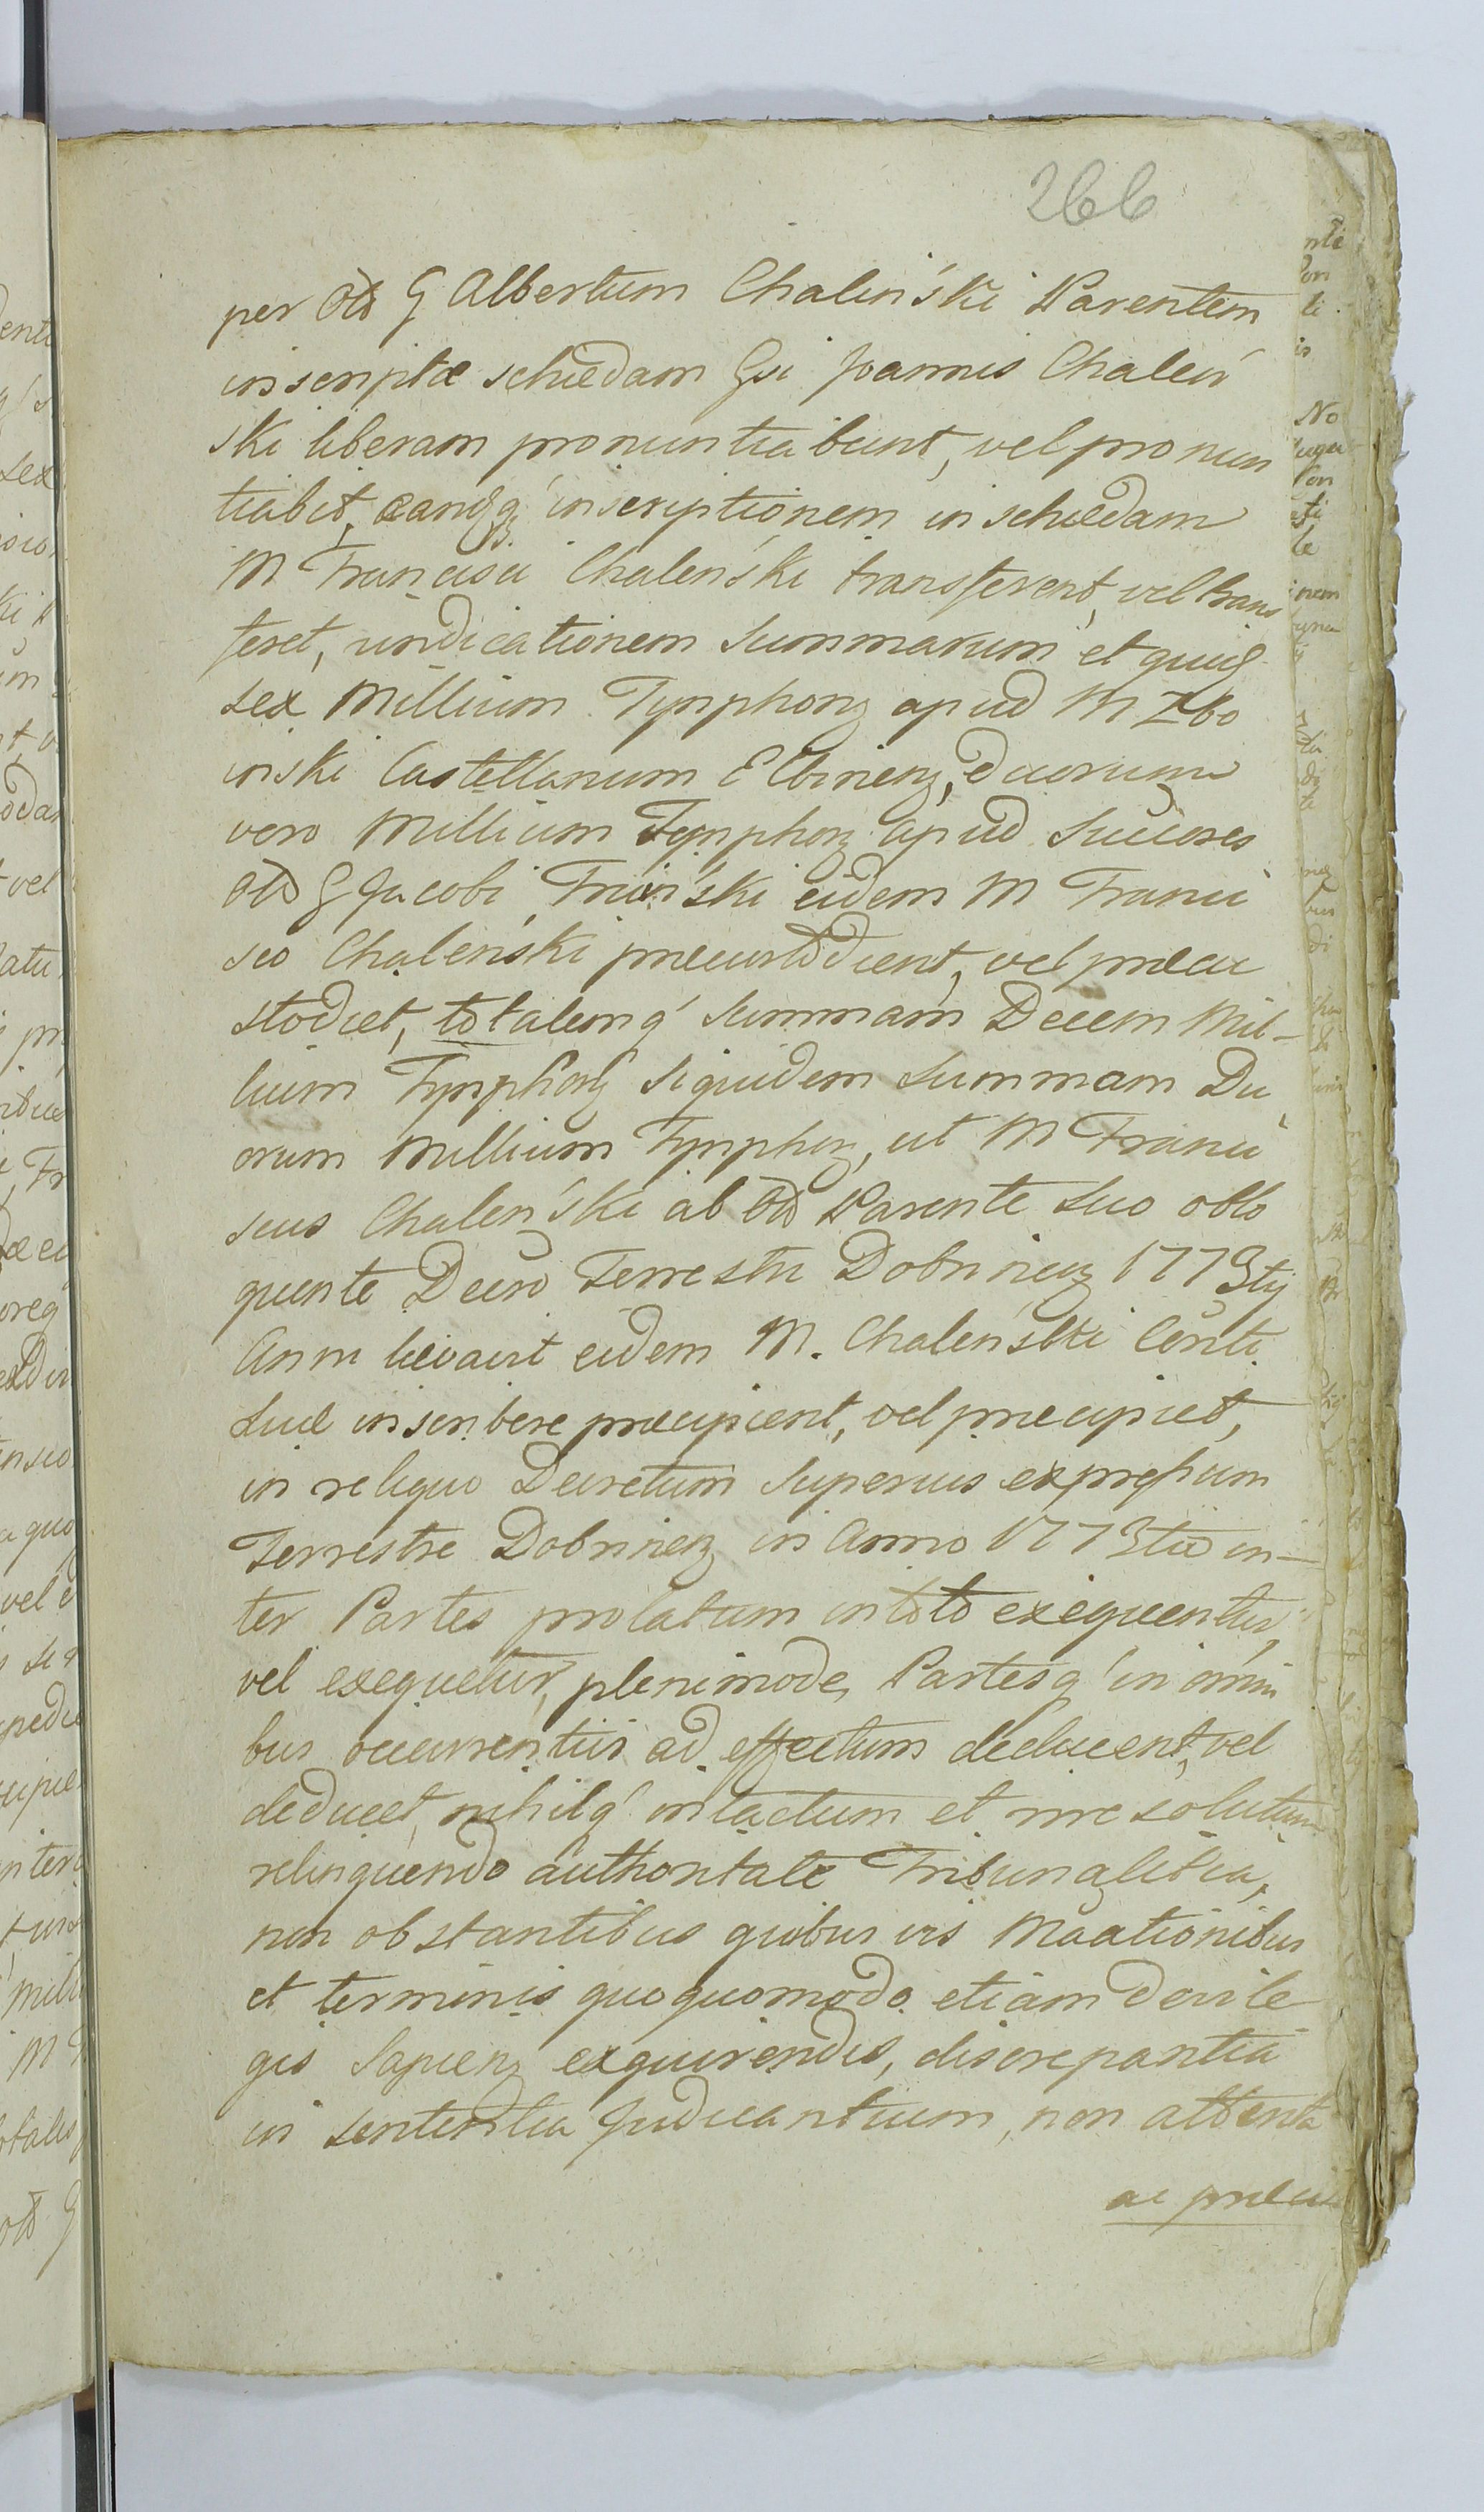 266
per Old G Albertum Chaleński Parentem
inscriptæ schedam Gsi Joannis Chaleń
ski liberam pronuntiabunt, vel pronun
tiabit, eandq; inscriptionem in schedam
M Francisci Chaleński transferent, vel trans
feret, vindicationem Summarum, et quid
sex Millium Tynphorz apud M Zbo
inski Castellanum Elbinenz, duorum
vero Millium Tynphorz apud Succores
Old G Jacobi eidem M Franci
sco Chaleński præcustodient, vel præcu
stodiet, totalemq' Summam Decem Mil-
lium Tynphorz siquidem Summam Du
orum Millium Tynphorz, ut M Franci
scus Chaleński ab Old Parente suo oblo
quente Decro Terrestri Dobrinenz 1773tij
Anni levavit eidem M. Chaleński Cenłi
suæ inscribere præcipient, vel præcipiet,
in reliquo Decretum Superius expressum
Terrestre Dobrinenz in Anno 1773tio in-
ter Partes prolatum in toto exequentur,
vel exequetur, plenimode, Partesq' in omni
bus occurrentiis ad effectum deducent, vel
deducet, nihilq' intactum et irresolutum
relinquendo authoritate Tribunalitia,
non obstantibus quibusvis Moationibus
et terminis quoquomodo etiam de vi le
gis Sapienz exquirendis, discrepantia
in sententia Judicantium, non attenta
ac præcis